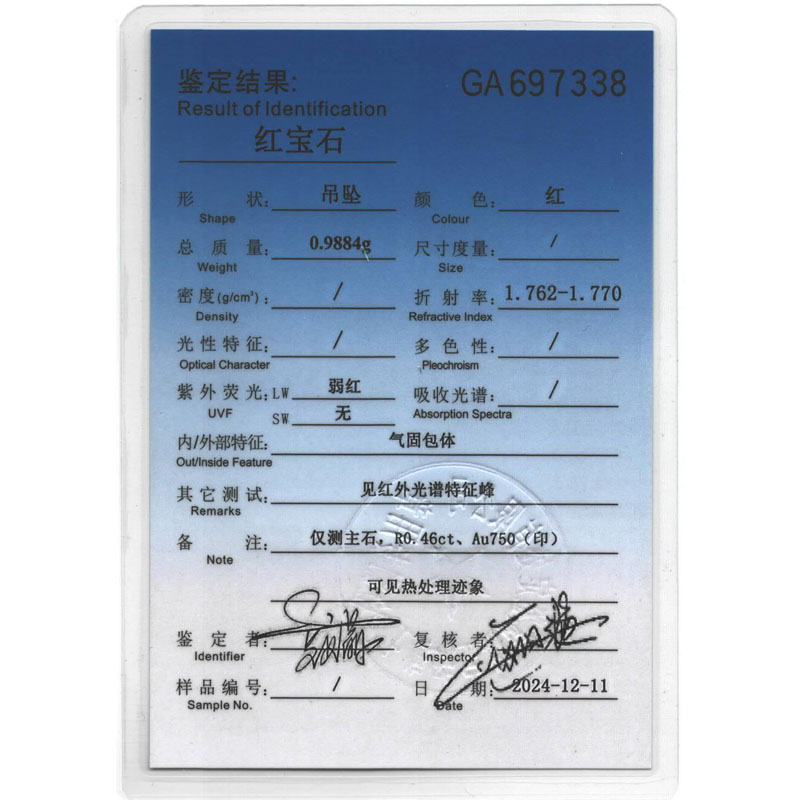 鉴定结果: GA697338
Result of Identification
红宝石
形 状: 吊坠 颜 色: 红
Shape Colour
总 质 量: 0.9884g 尺寸度量: /
Weight Size
密度(g/cm³): / 折 射 率: 1.762-1.770
Density Refractive Index
光性特征: / 多 色 性: /
Optical Character Pleochroism
紫外荧光: LW 弱红 吸收光谱: /
UVF SW 无 Absorption Spectra
内/外部特征: 气固包体
Out/Inside Feature
其它测试: 见红外光谱特征峰
Remarks
备 注: 仅测主石, R0.46ct、Au750(印)
Note
可见热处理迹象
鉴 定 者: 复 核 者:
Identifier Inspector
样品编号: / 日 期: 2024-12-11
Sample No. Date